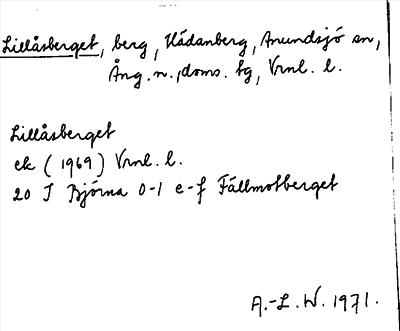 Lillåsberget, berg, Kådanberg, Anundsjö sn,
Ång. n., doms. tg, Vrnl. l.
Lillåsberget
ek (1969) Vrnl. l.
20 J Björna 0-1 e-f Fällmotberget
A.-L. W. 1971.